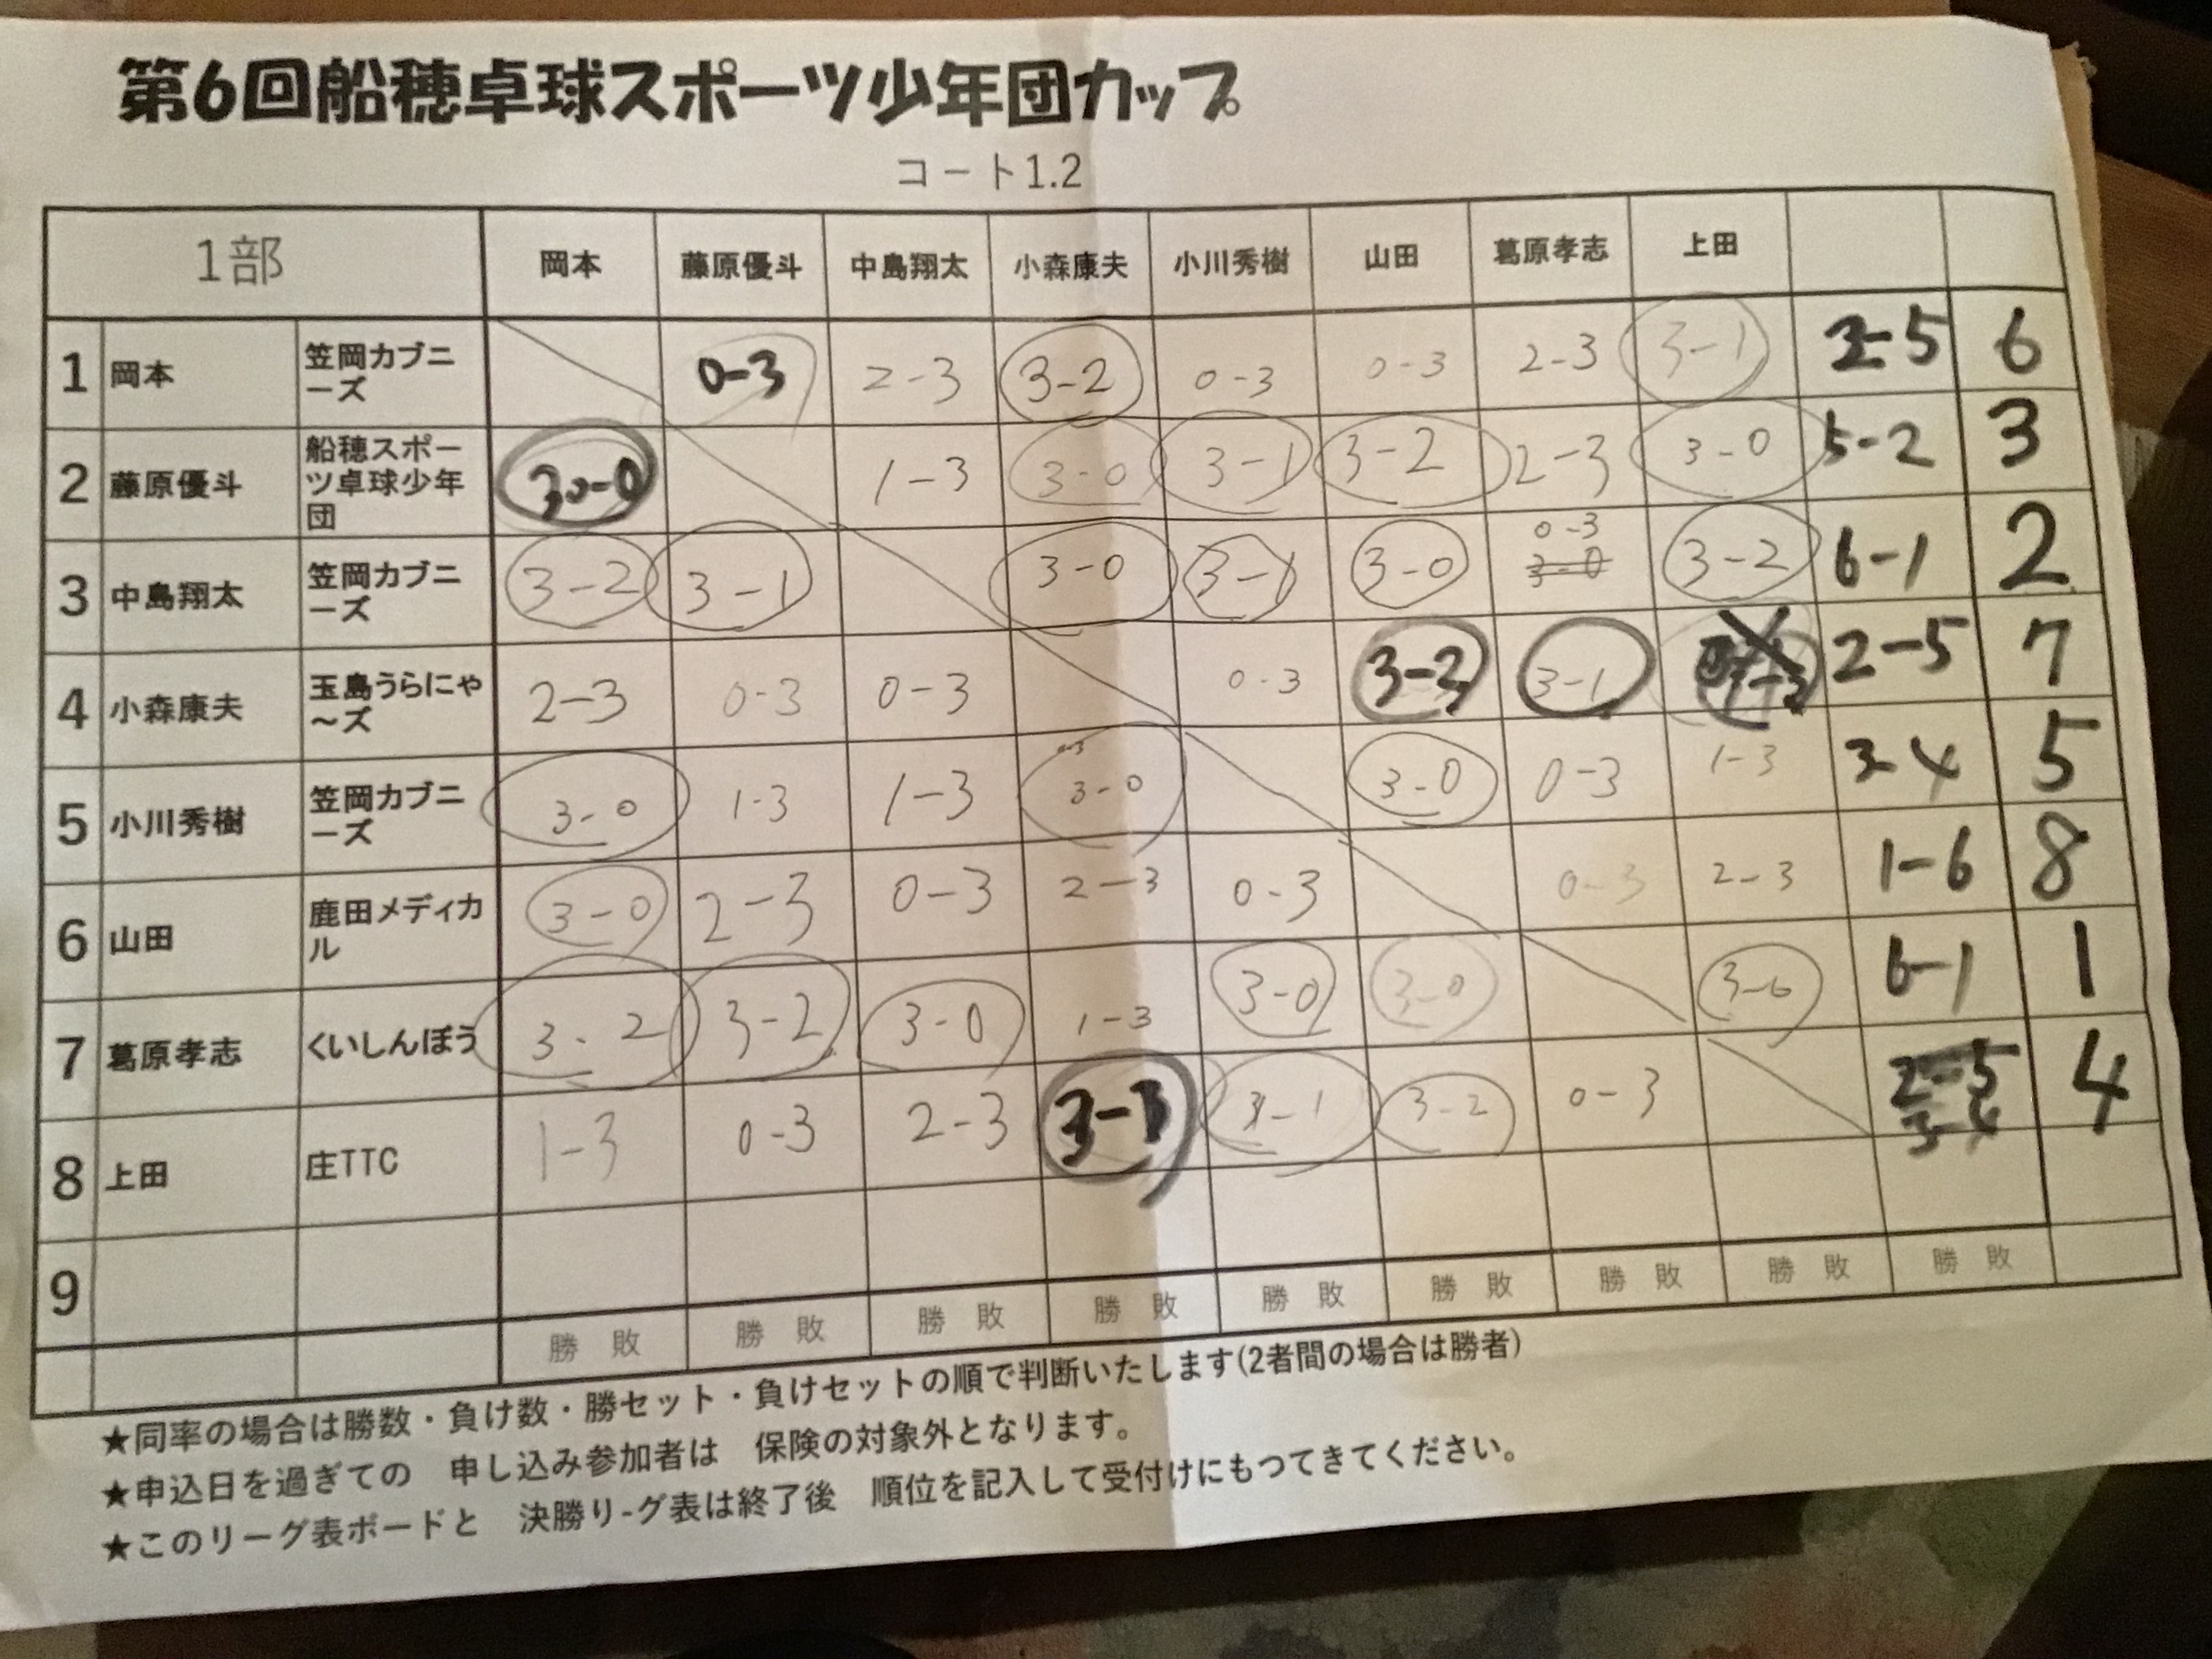 第6回船穂卓球スポーツ少年団カップ
コート1.2
1部 岡本 藤原優斗 中島翔太 小森康夫 小川秀樹 山田 葛原孝志 上田
1 岡本 笠岡カブニーズ 0-3 2-3 3-2 0-3 0-3 2-3 3-1 2-5 6
2 藤原優斗 船穂スポーツ卓球少年団 1-3 3-0 3-1 3-2 2-3 3-0 5-2 3
3 中島翔太 笠岡カブニーズ 3-2 3-1 3-0 3-1 3-0 0-3 3-0 3-2 6-1 2
4 小森康夫 玉島うらにゃ～ズ 2-3 0-3 0-3 0-3 3-2 3-1 2-5 7
5 小川秀樹 笠岡カブニーズ 3-0 1-3 1-3 3-0 3-0 0-3 1-3 3-4 5
6 山田 鹿田メディカル 3-0 2-3 0-3 2-3 0-3 0-3 2-3 1-6 8
7 葛原孝志 くいしんぼう 3-2 3-2 3-0 1-3 3-0 3-0 3-0 6-1 1
8 上田 庄TTC 1-3 0-3 2-3 3-1 3-2 0-3 4
9
勝 敗 勝 敗 勝 敗 勝 敗 勝 敗 勝 敗 勝 敗 勝 敗 勝 敗
★同率の場合は勝数・負け数・勝セット・負けセットの順で判断いたします(2者間の場合は勝者)
★申込日を過ぎての 申し込み参加者は 保険の対象外となります。
★このリーグ表ボードと 決勝り-グ表は終了後 順位を記入して受付けにもつてきてください。